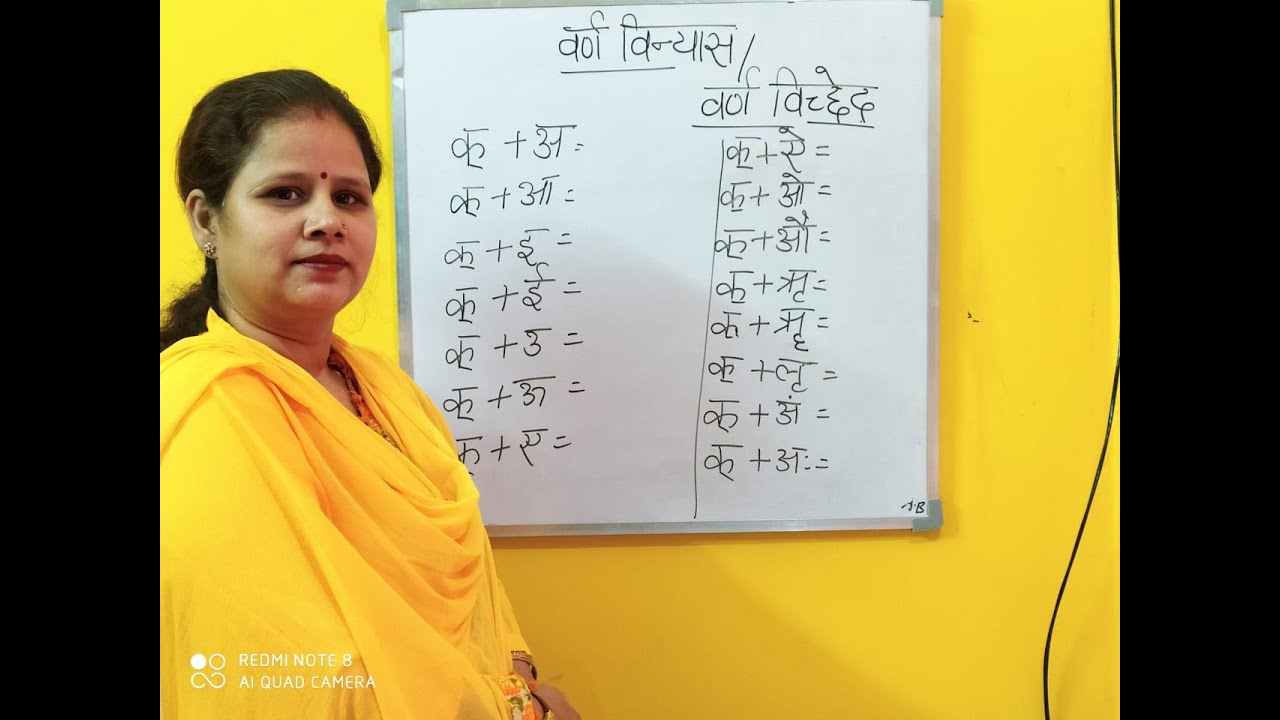 वर्ण विन्यास/
वर्ण विच्छेद
क् + अ =
क् + आ =
क् + इ =
क् + ई =
क् + उ =
क् + ऊ =
क् + ए =
क् + ऐ =
क् + ओ =
क् + औ =
क् + ऋ =
क् + ॠ =
क् + लृ =
क् + अं =
क् + अः =
REDMI NOTE 8
AI QUAD CAMERA